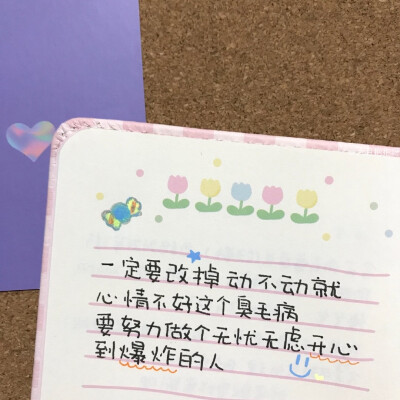 一定要改掉动不动就
心情不好这个臭毛病
要努力做个无忧无虑开心
到爆炸的人